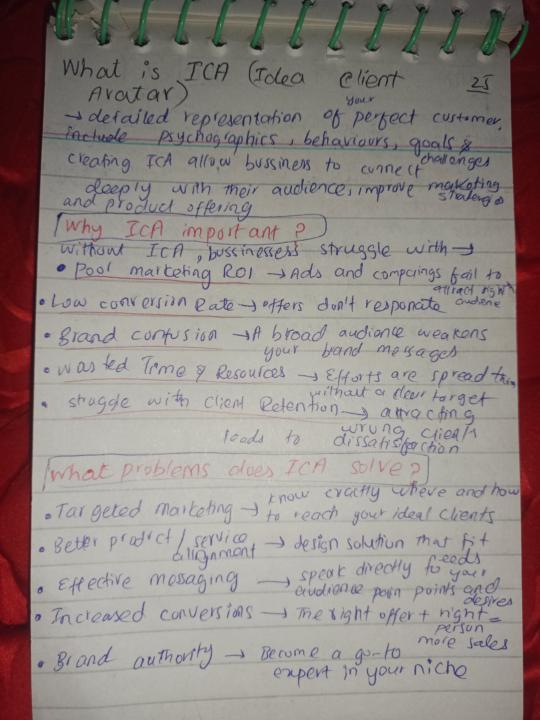 What is ICA (Idea Client
Avatar) 25
→ detailed representation of your perfect customer,
include psychographics, behaviours, goals &
creating ICA allow bussiness to connect challenges
deeply with their audience, improve marketing
and product offering strategies
Why ICA important?
without ICA, bussinesses struggle with →
• Pool marketing ROI → Ads and compaings fail to
attract right audience
• Low conversion Rate → offers don't responate
• Brand confusion → A broad audience weakens
your brand messages
• Wasted Time & Resources → Efforts are spread thin
without a clear target
• struggle with client Retention → attracting
wrong clients
leads to dissatisfaction
What problems does ICA solve?
• Targeted marketing → know exactly where and how
to reach your ideal clients
• Better product / service
allignment → design solution that fit
needs
• Effective messaging → speak directly to your
audience pain points and
desires
• Increased conversions → The right offer + right =
person
more sales
• Brand authority → Become a go-to
expert in your niche